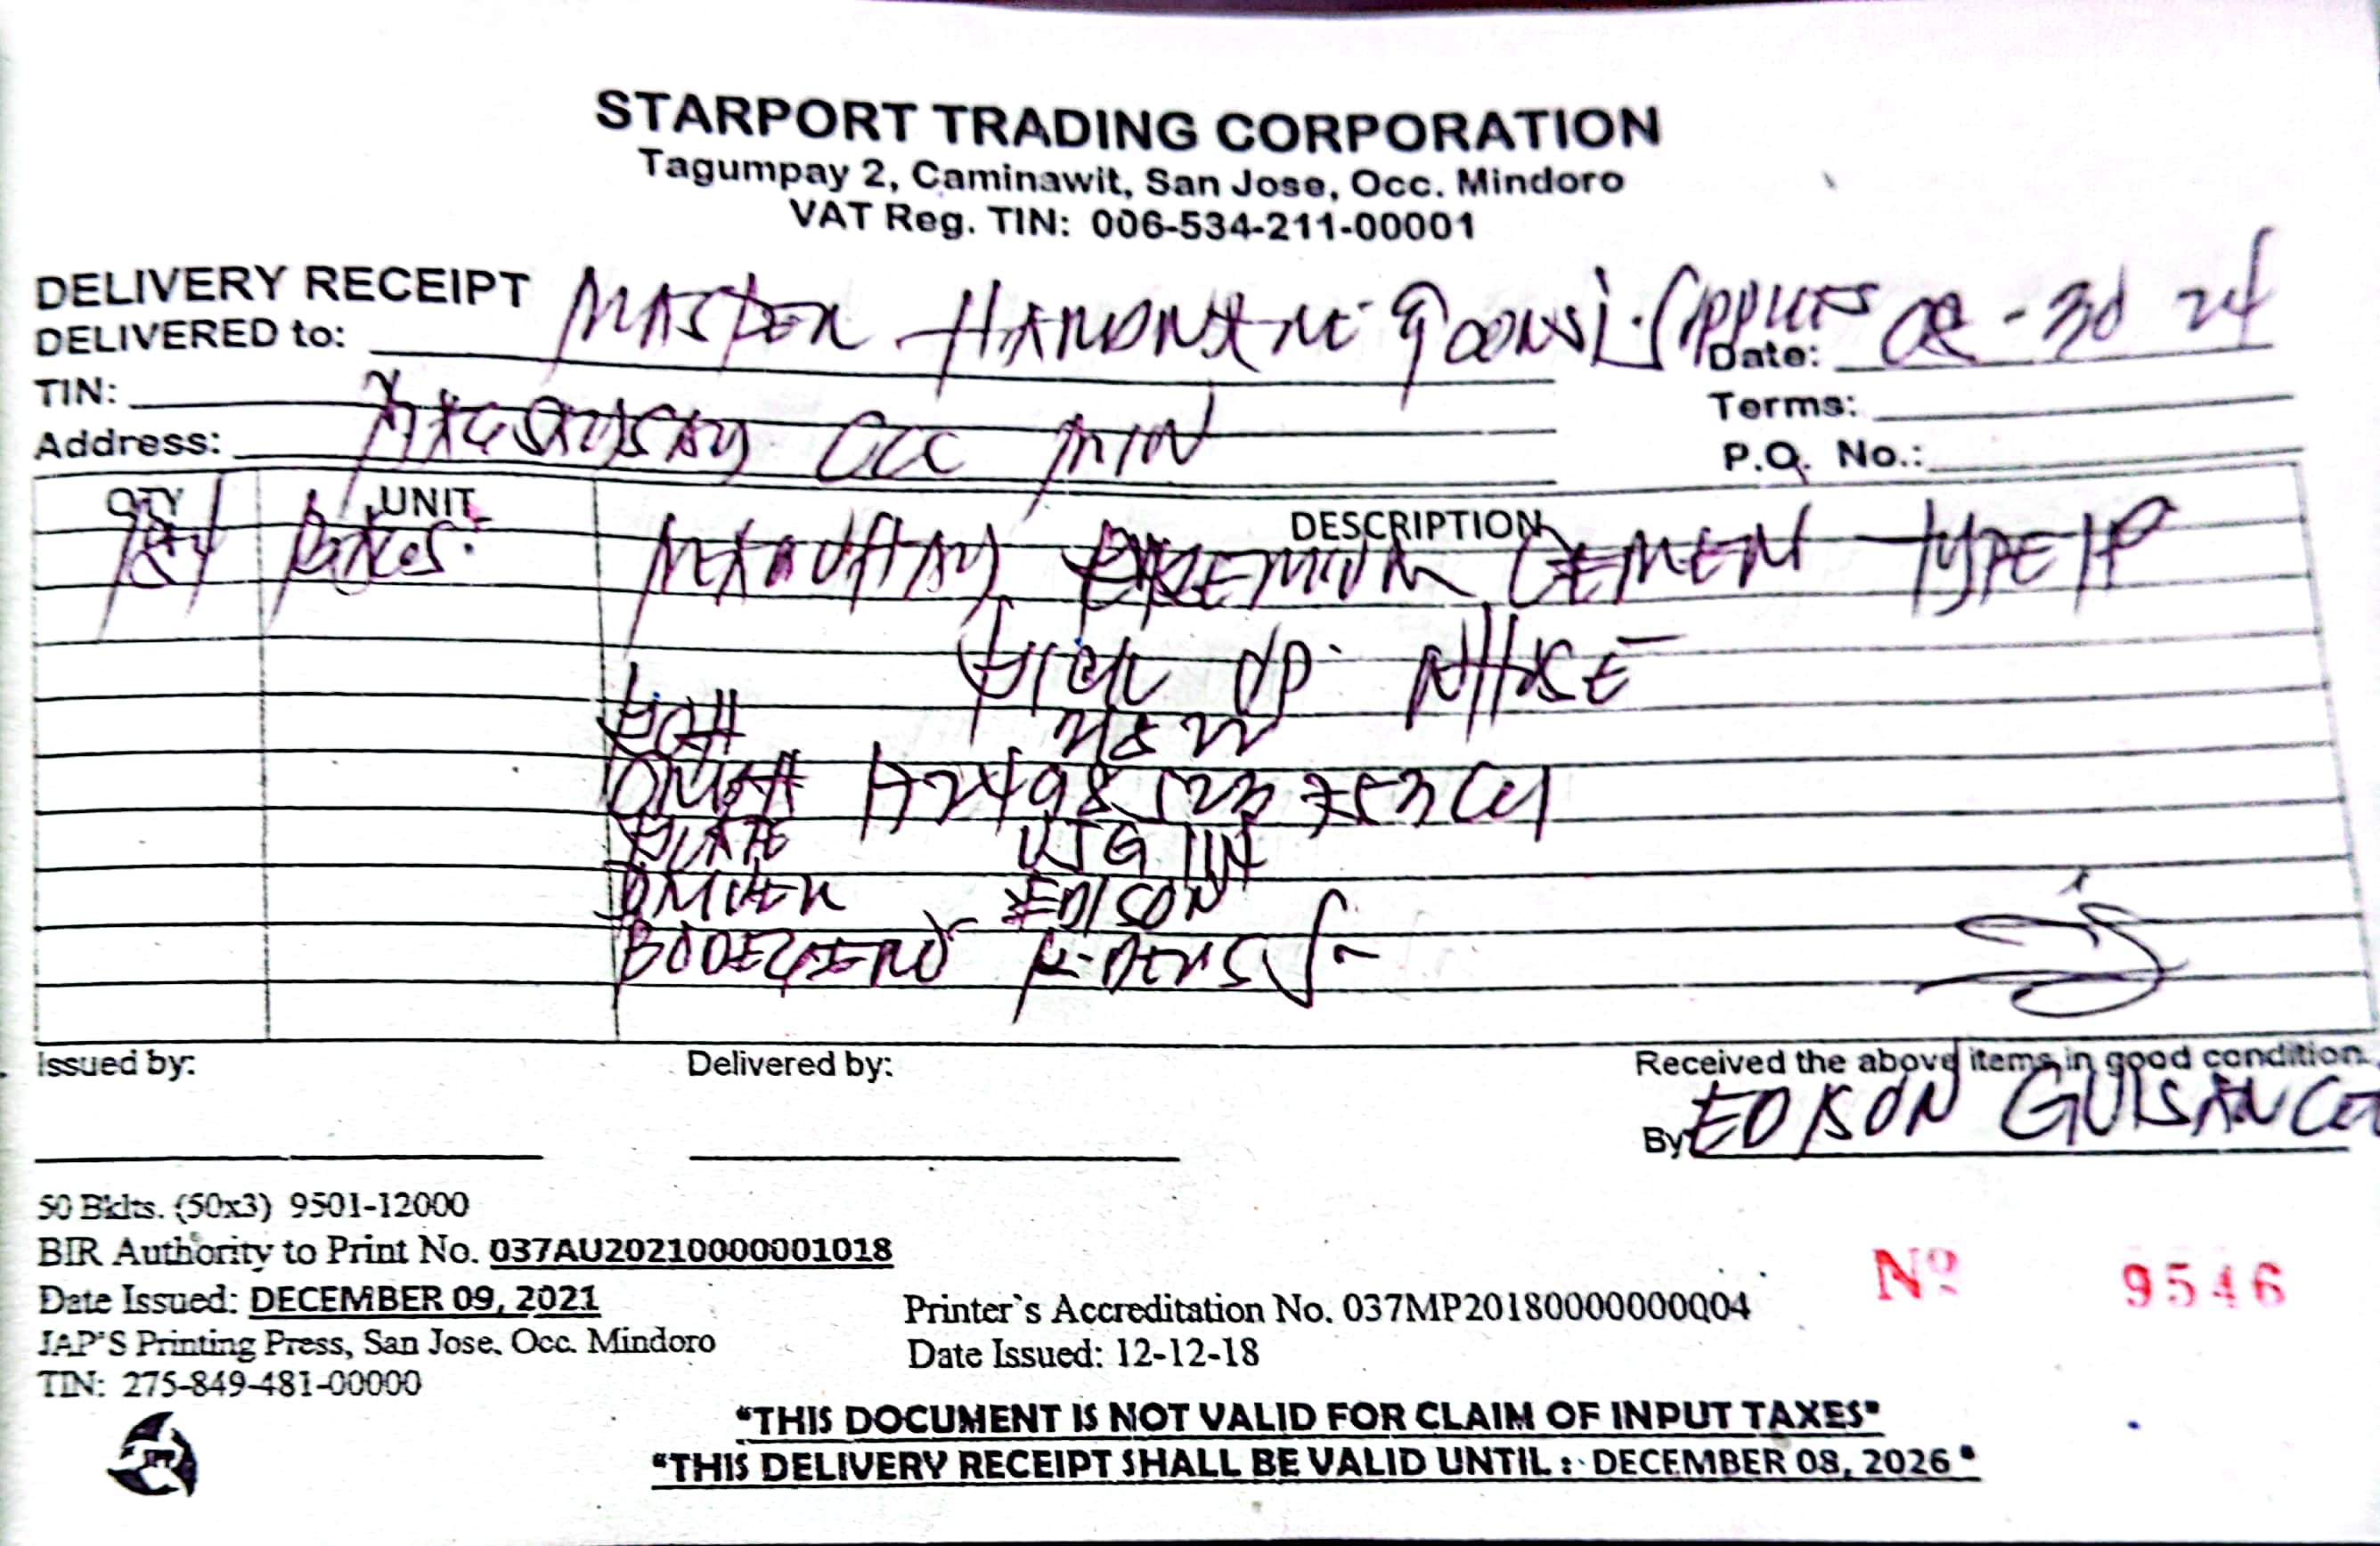 STARPORT TRADING CORPORATION
Tagumpay 2, Caminawit, San Jose, Occ. Mindoro
VAT Reg. TIN: 006-534-211-00001
DELIVERY RECEIPT
DELIVERED to: MASTER HARDWARE
Date: 08-30 24
TIN:
Terms:
Address: MAGSAYSAY OCC MIN
P.O. No.:
QTY UNIT DESCRIPTION
PREMIUM CEMENT TYPE 1P
PICK UP WHSE
PLATE
DRIVER EDISON
BODEGERO
Issued by:
Delivered by:
Received the above items in good condition.
By EDISON
50 Bklts. (50x3) 9501-12000
BIR Authority to Print No. 037AU20210000001018
Date Issued: DECEMBER 09, 2021
JAP'S Printing Press, San Jose. Occ. Mindoro
TIN: 275-849-481-00000
Printer`s Accreditation No. 037MP20180000000004
Date Issued: 12-12-18
Nº 9546
"THIS DOCUMENT IS NOT VALID FOR CLAIM OF INPUT TAXES"
"THIS DELIVERY RECEIPT SHALL BE VALID UNTIL : DECEMBER 08, 2026"